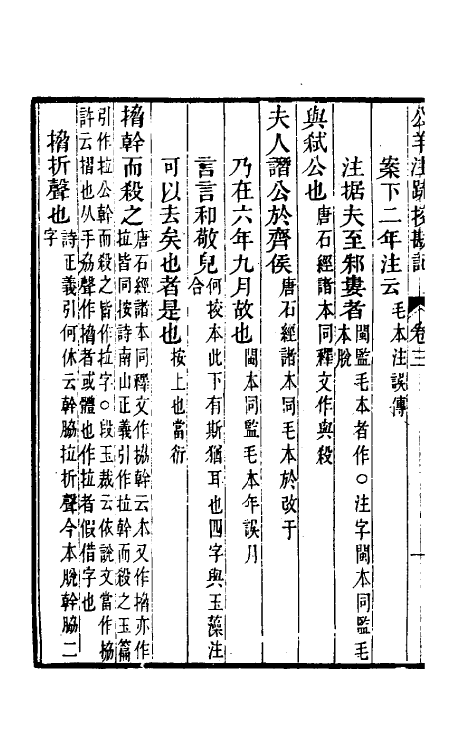 公羊注疏挍勘記 卷三 十
案下二年注云 毛本注誤傳
注据夫至邾婁者 閩監毛本者作○注字閩本同監毛
本脫
與弒公也 唐石經諸本同釋文作與殺
夫人譖公於齊侯 唐石經諸本同毛本於改于
乃在六年九月故也 閩本同監毛本年誤月
言言和敬皃 何挍本此下有斯猶耳也四字與玉藻注
合
可以去矣也者是也 按上也當衍
搚幹而殺之 唐石經諸本同釋文作拹幹云本又作搚亦作
拉皆同按詩南山正義引作拉幹而殺之玉篇
引作拉公幹而殺之皆作拉字○段玉裁云依說文當作拹
許云摺也从手劦聲作搚者或體也作拉者假借字也
搚折聲也 詩正義引何休云幹脇拉折聲今本脫幹脇二
字